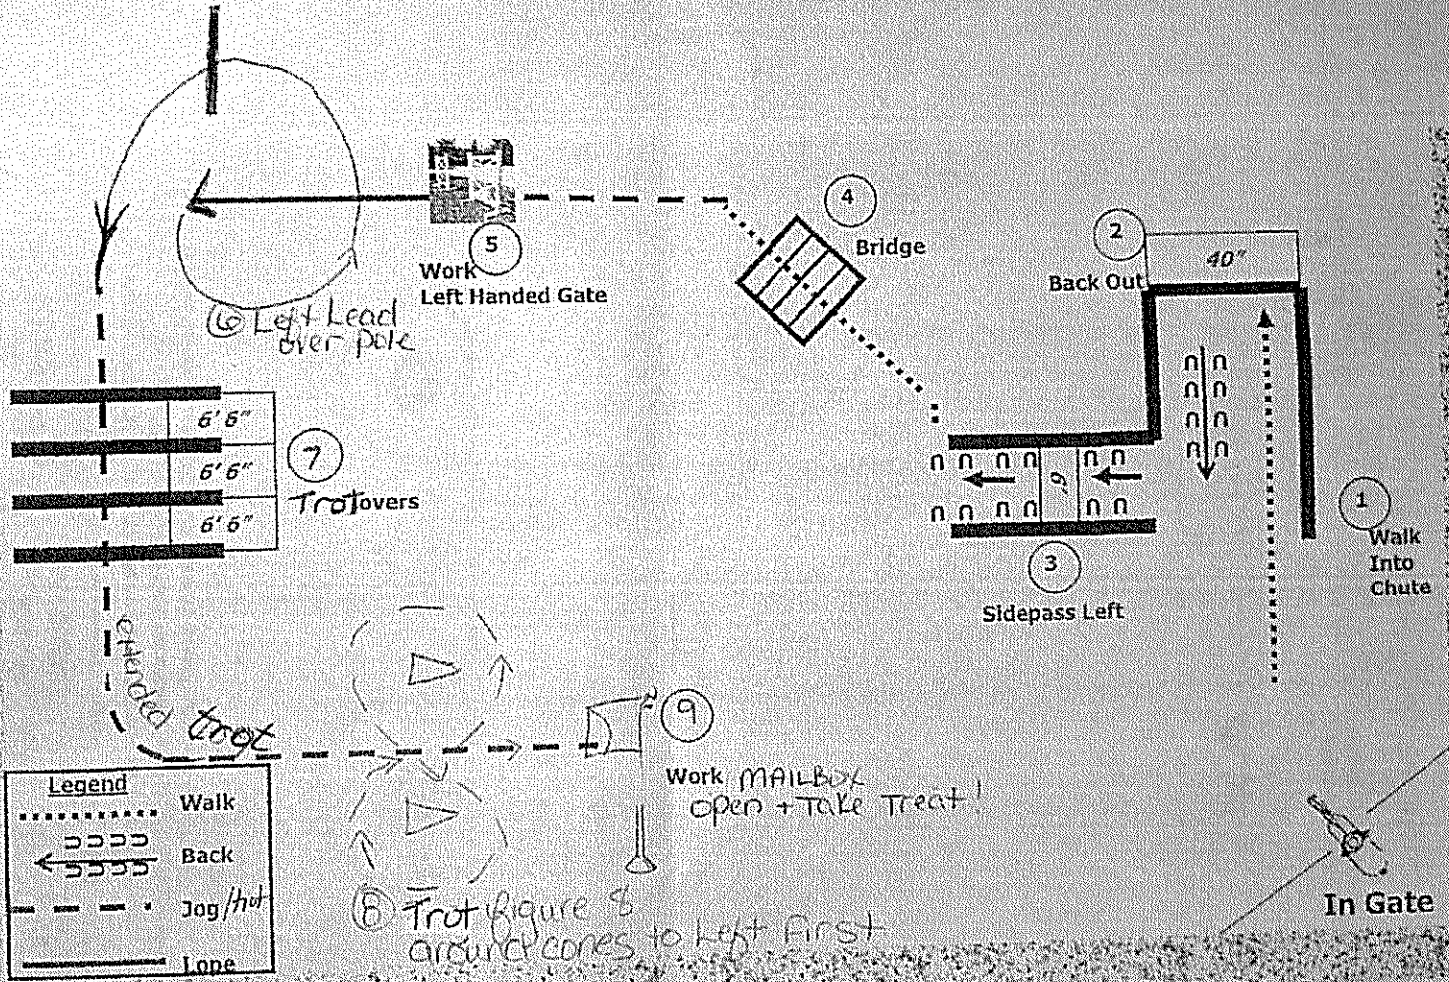 4
Bridge
2
40"
Back Out
5
Work
Left Handed Gate
6 Left Lead
over pole
6' 6"
6' 6"
6' 6"
7
Trotovers
6'
3
Sidepass Left
1
Walk
Into
Chute
extended trot
9
Work MAILBOX
open + Take Treat!
8 Trot figure 8
around cones to Left First
In Gate
Legend
Walk
Back
Jog/trot
Lope